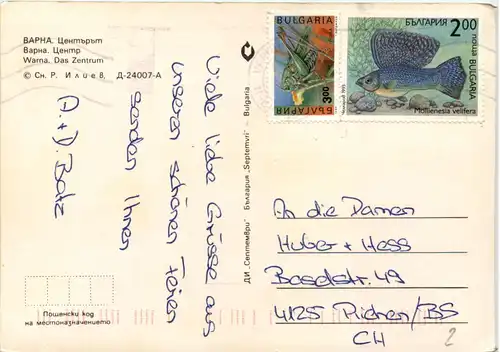 ВАРНА. Центърът
Варна. Центр
Warna. Das Zentrum
© Сн. Р. Илиев. Д-24007-А
Viele liebe Grüsse aus
unseren schönen Ferien
senden Ihnen
A.+D. Botz
ДИ „Септември" България „Septemvri" – Bulgaria
BULGARIA
3.00
БЪЛГАРИЯ
БЪЛГАРИЯ
2.00
поща
BULGARIA
Mollienesia velifera
An die Damen
Huber + Hess
Baselstr. 49
4125 Riehen/BS
CH
Пощенски код
на местоназначението
2